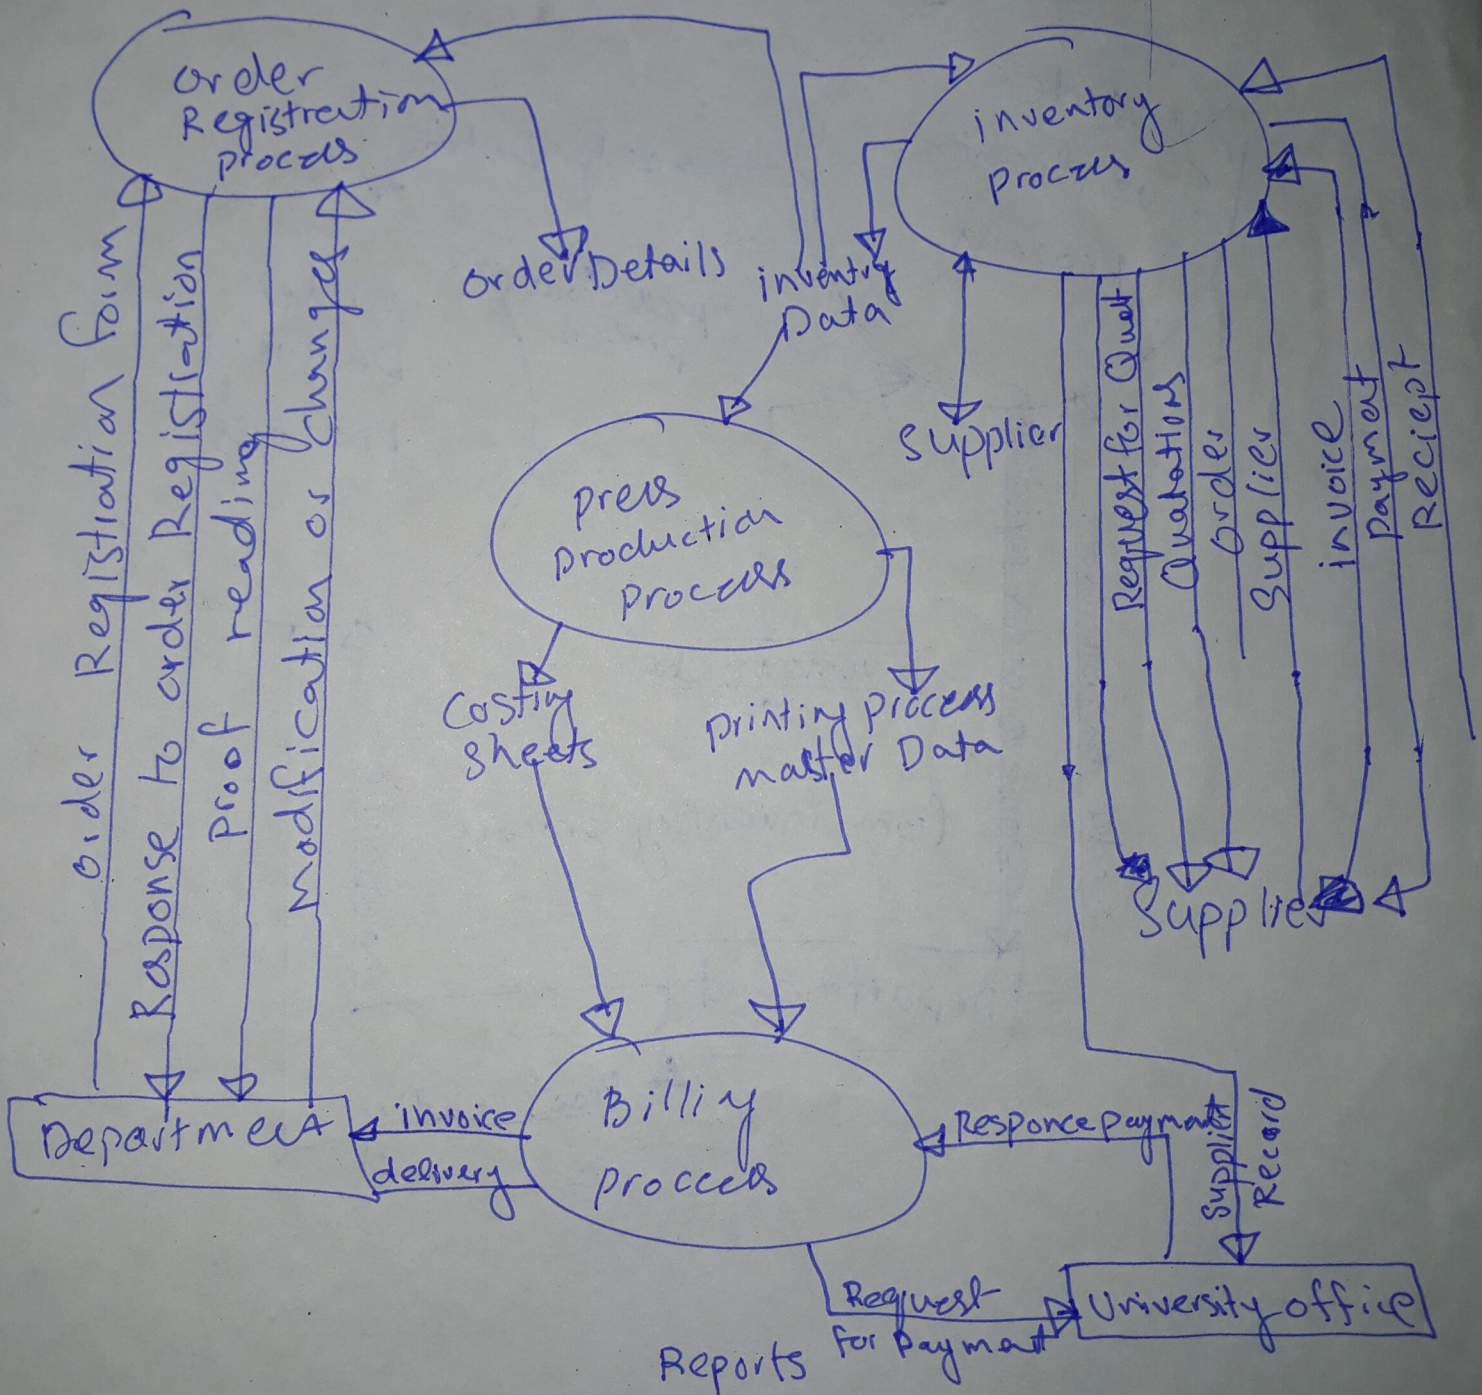 order
Registration
process
inventory
process
order Details
inventry
Data
Supplier
order Registration form
Response to order Registration
proof reading
modification or changes
Request for Quet
Quatations
order
Supplier
invoice
payment
Reciept
press
production
process
Costing
Sheets
printing process
master Data
Supplier
Department
invoice
delivery
Billing
proccess
Responce payment
Supplier
Record
Request
for payment
University office
Reports